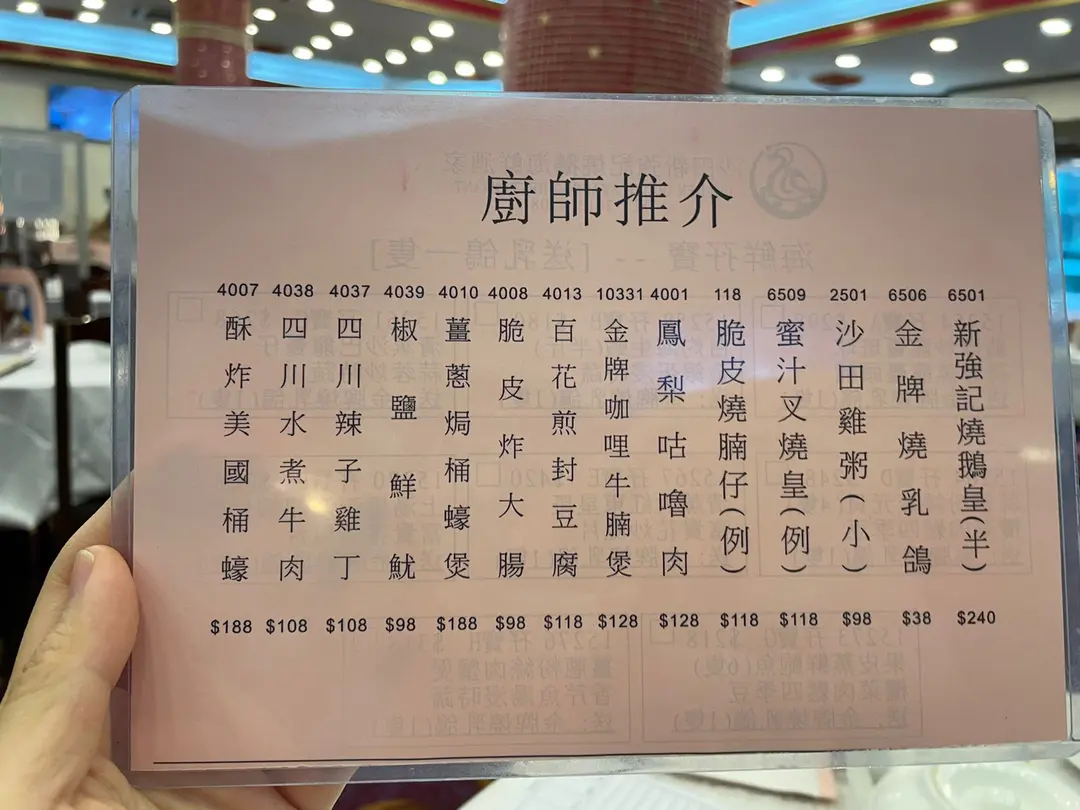 廚師推介
6501 新強記燒鵝皇(半) $240
6506 金牌燒乳鴿 $38
2501 沙田雞粥(小) $98
6509 蜜汁叉燒皇(例) $118
118 脆皮燒腩仔(例) $118
4001 鳳梨咕嚕肉 $128
10331 金牌咖哩牛腩煲 $128
4013 百花煎封豆腐 $118
4008 脆皮炸大腸 $98
4010 薑蔥焗桶蠔煲 $188
4039 椒鹽鮮魷 $98
4037 四川辣子雞丁 $108
4038 四川水煮牛肉 $108
4007 酥炸美國桶蠔 $188